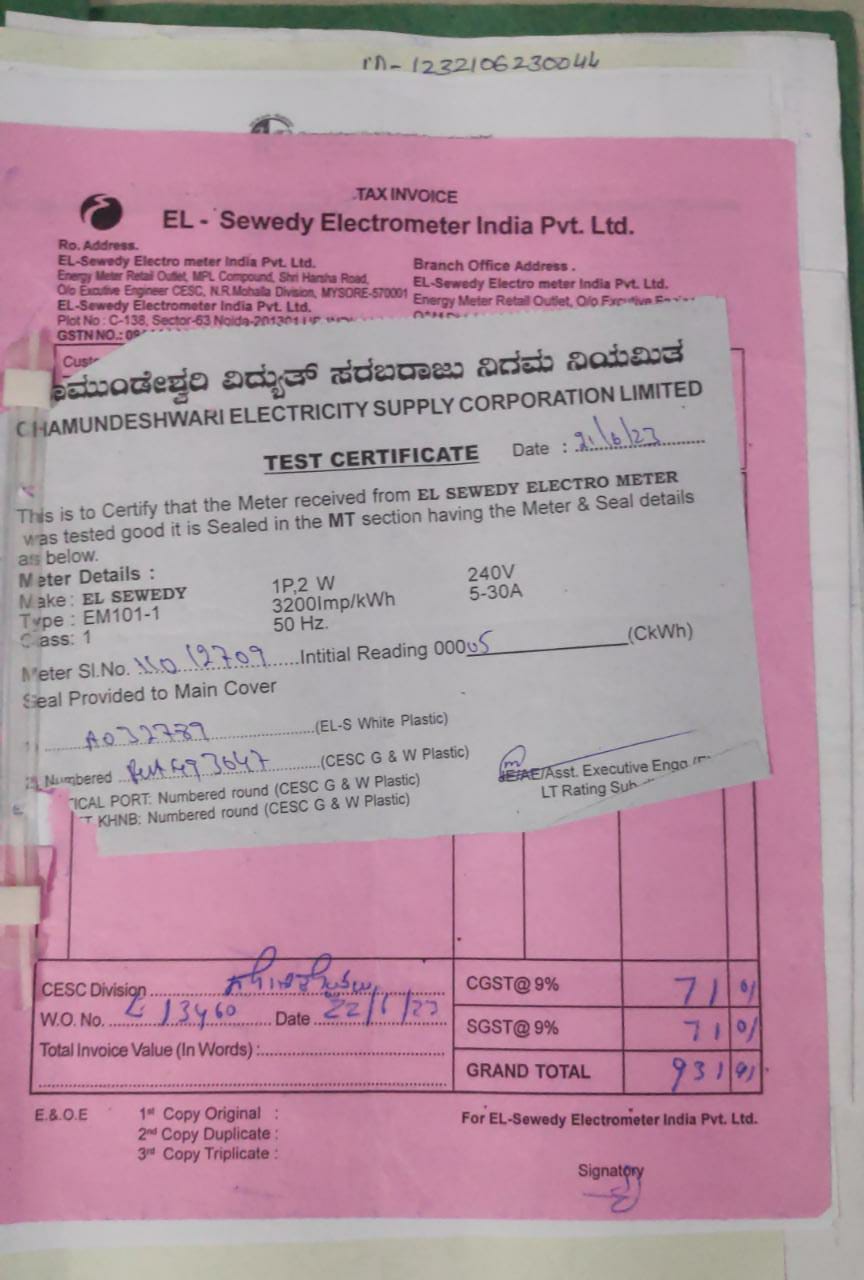 1232106230044
TAX INVOICE
EL - Sewedy Electrometer India Pvt. Ltd.
Ro. Address.
EL-Sewedy Electro meter India Pvt. Ltd.
Energy Meter Retail Outlet, MPL Compound, Shri Harsha Road,
O/o Excutive Engineer CESC, N.R.Mohalla Division, MYSORE-570001
EL-Sewedy Electrometer India Pvt. Ltd.
Plot No : C-138, Sector-63 Noida-201301
GSTN NO.:
Branch Office Address .
EL-Sewedy Electro meter India Pvt. Ltd.
Energy Meter Retail Outlet, O/o
ವಿದ್ಯುತ್ ಸರಬರಾಜು ನಿಗಮ ನಿಯಮಿತ
CHAMUNDESHWARI ELECTRICITY SUPPLY CORPORATION LIMITED
TEST CERTIFICATE Date : 21/6/23
This is to Certify that the Meter received from EL SEWEDY ELECTRO METER
was tested good it is Sealed in the MT section having the Meter & Seal details
as below.
Meter Details :
Make : EL SEWEDY 1P,2 W 240V
Type : EM101-1 3200Imp/kWh 5-30A
Class: 1 50 Hz.
Meter Sl.No. 12709 Intitial Reading 00005 (CkWh)
Seal Provided to Main Cover
A032789 (EL-S White Plastic)
Numbered (CESC G & W Plastic)
PORT: Numbered round (CESC G & W Plastic)
KHNB: Numbered round (CESC G & W Plastic)
JE/AE/Asst. Executive
LT Rating
CESC Division
CGST@ 9% 71
W.O. No. 13460 Date
SGST@ 9% 71
Total Invoice Value (In Words) :
GRAND TOTAL 931
E.&.O.E 1st Copy Original :
2nd Copy Duplicate :
3rd Copy Triplicate :
For EL-Sewedy Electrometer India Pvt. Ltd.
Signatory